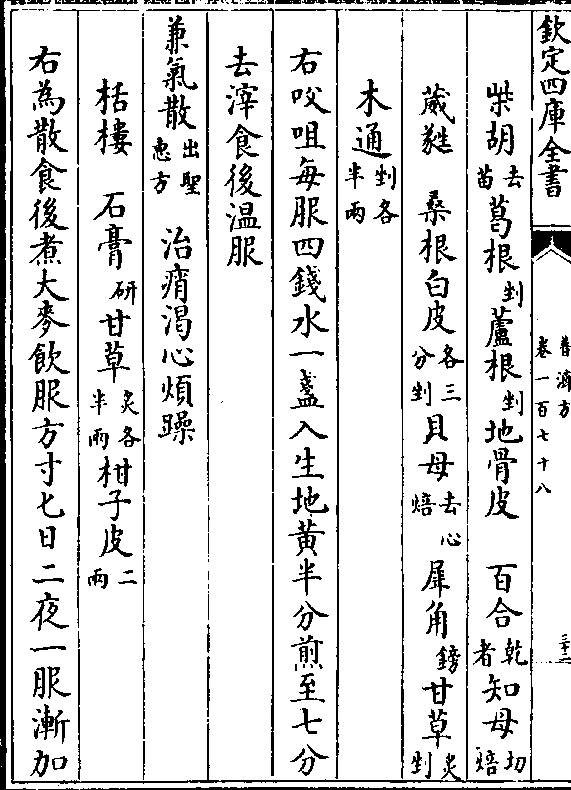 欽定四庫全書
普濟方
卷一百七十八
三十二
柴胡去苗 葛根剉 蘆根剉 地骨皮 百合乾者 知母切焙
葳蕤 桑根白皮各三分剉 貝母去心焙 犀角鎊 甘草炙剉
木通剉各半兩
右㕮咀每服四錢水一盞入生地黄半分煎至七分
去滓食後温服
兼氣散出聖惠方 治痟渴心煩躁
栝樓 石膏研 甘草炙各半兩 柑子皮二兩
右為散食後煮大麥飲服方寸七日二夜一服漸加